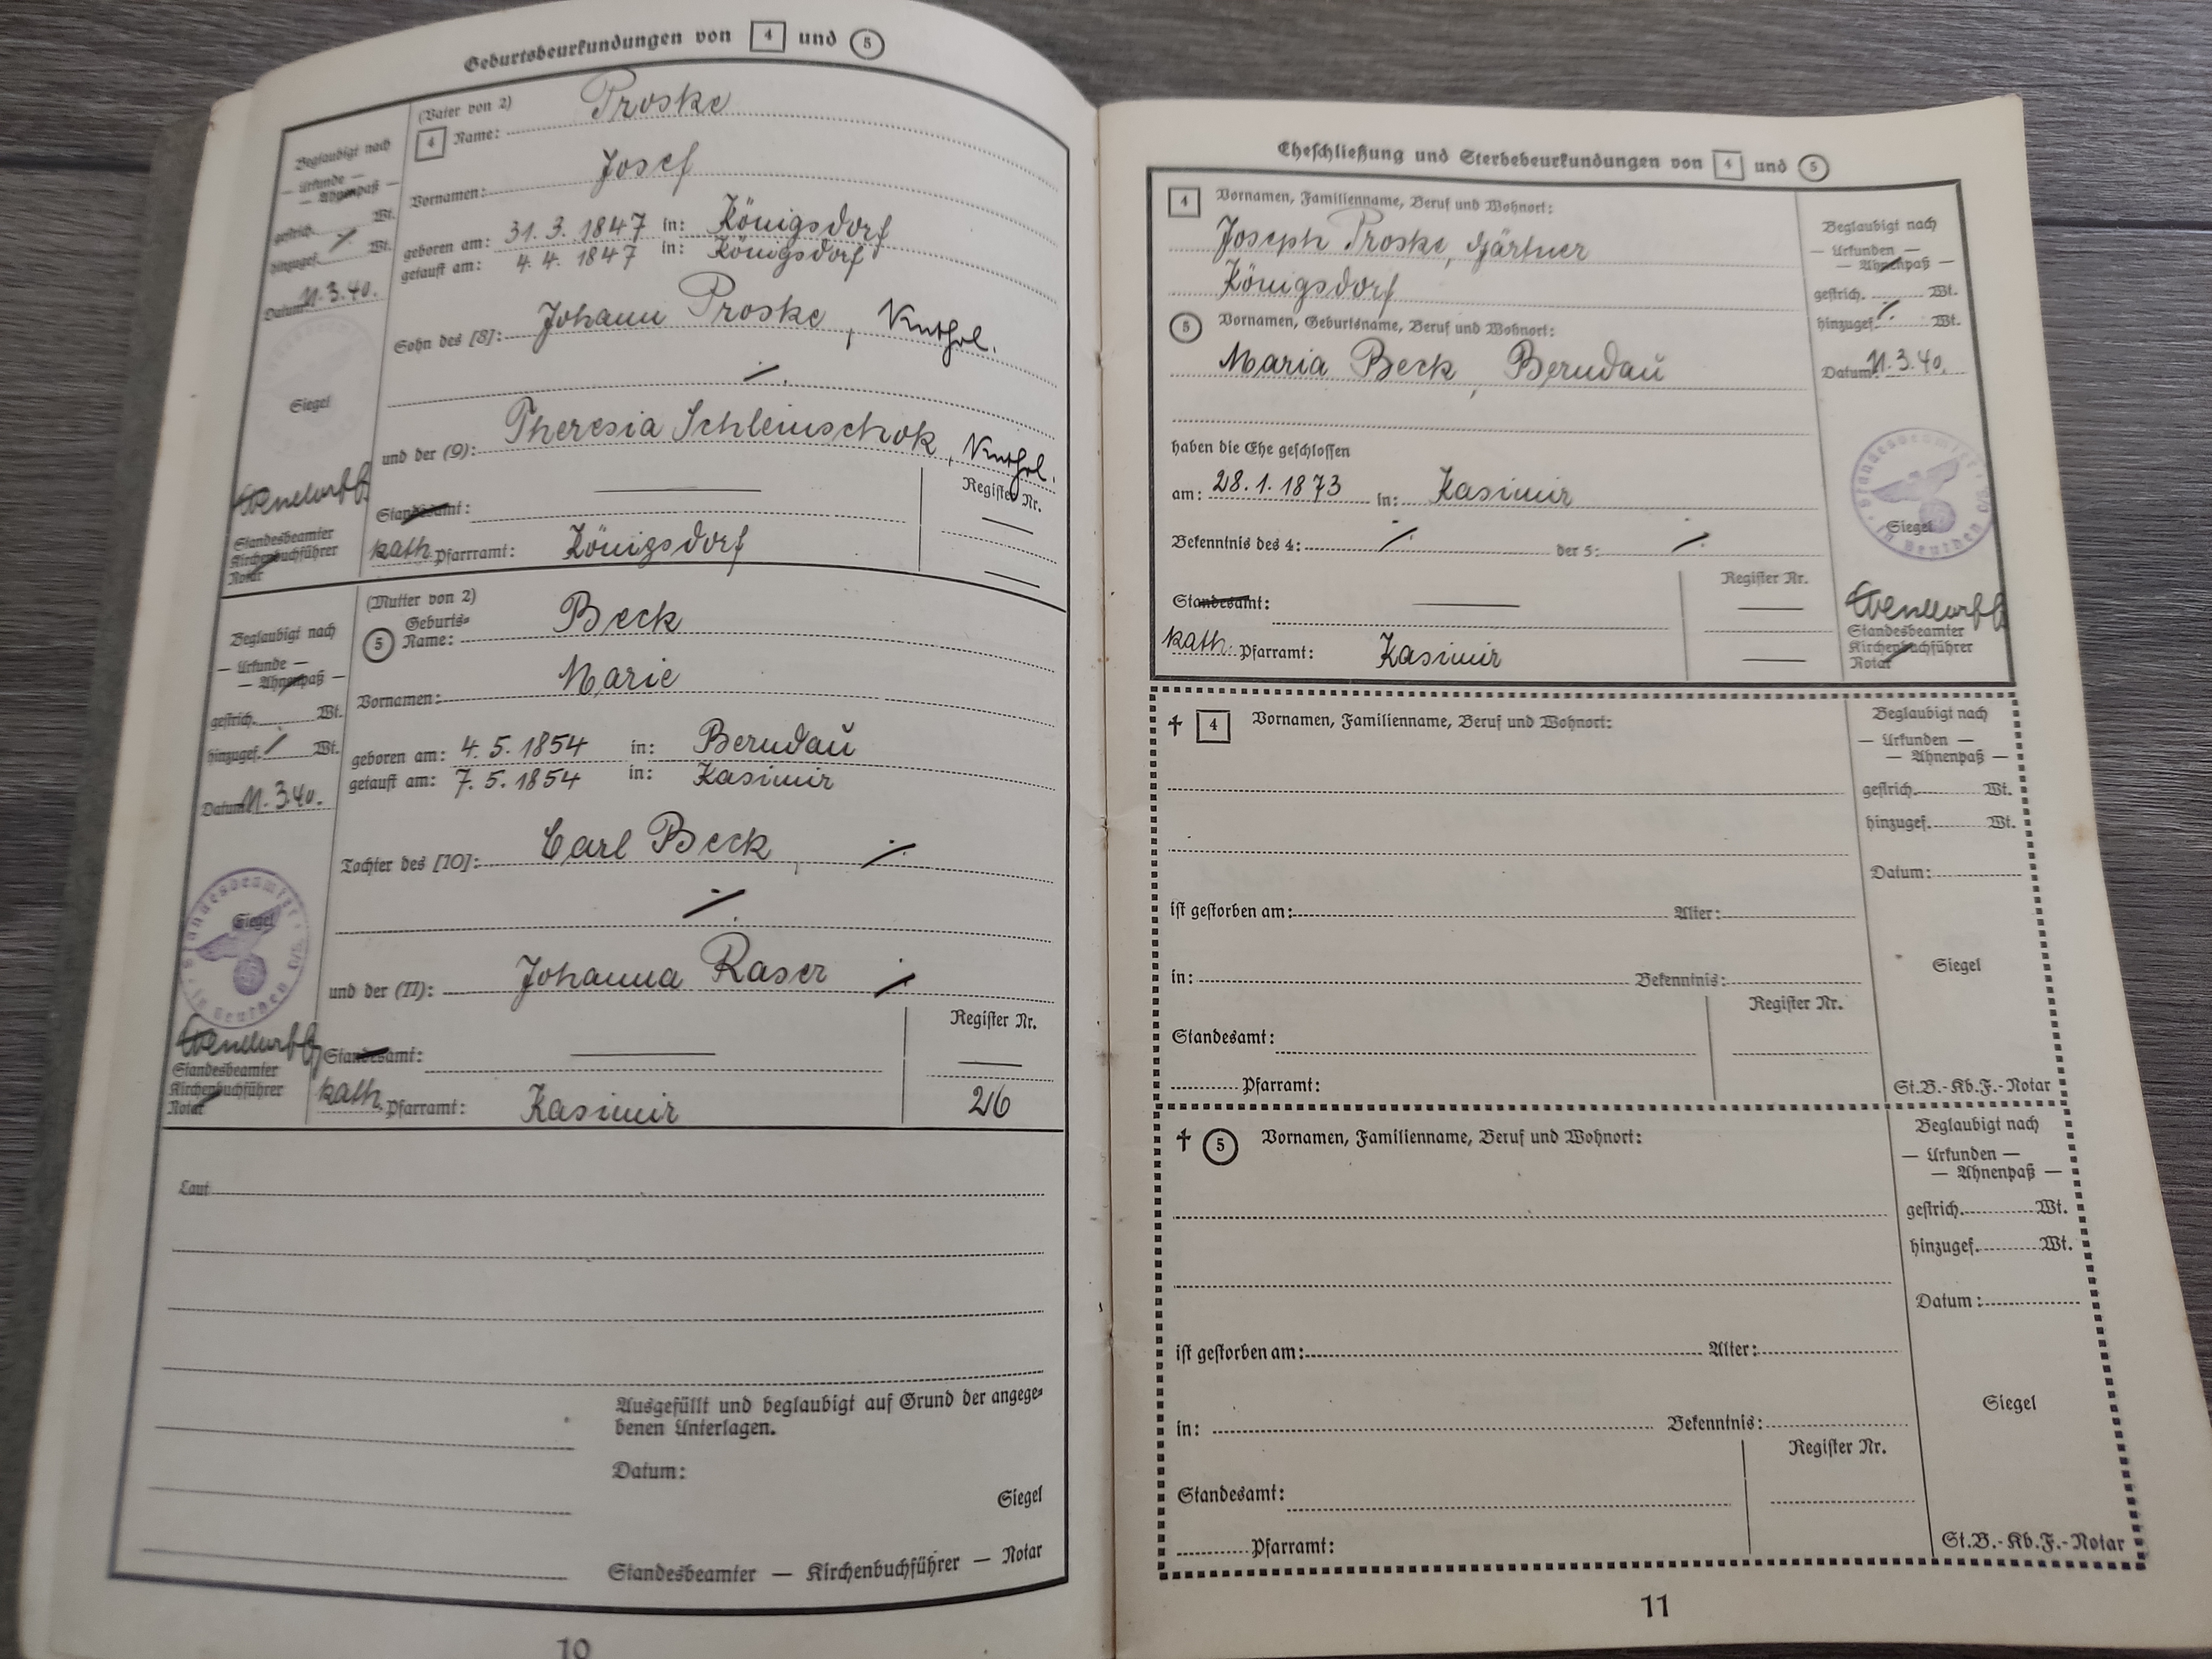 Geburtsbeurkundungen von 4 und 5
Beglaubigt nach
— Urkunde —
— Ahnenpaß —
gestrich. Wt.
hinzugef. ⁒ Wt.
Datum 11.3.40.
Siegel
Standesbeamter
Kirchenbuchführer
Notar
(Vater von 2)
4 Name: Proske
Vornamen: Josef
geboren am: 31.3.1847 in: Königsdorf
getauft am: 4.4.1847 in: Königsdorf
Sohn des [8]: Johann Proske, Kathol.
⁒
und der (9): Theresia Schleinschok, Kathol.
Register Nr.
Standesamt: —
kath. Pfarramt: Königsdorf —
Beglaubigt nach
— Urkunde —
— Ahnenpaß —
gestrich. Wt.
hinzugef. ⁒ Wt.
Datum 11.3.40.
Siegel
Standesbeamter
in Beuthen O/S
Standesbeamter
Kirchenbuchführer
Notar
(Mutter von 2)
Geburts-
5 Name: Beck
Vornamen: Marie
geboren am: 4.5.1854 in: Berndau
getauft am: 7.5.1854 in: Kasimir
Tochter des [10]: Carl Beck, ⁒
⁒
und der (11): Johanna Kaser ⁒
Register Nr.
Standesamt: —
kath. Pfarramt: Kasimir 26
Laut
Ausgefüllt und beglaubigt auf Grund der angege-
benen Unterlagen.
Datum:
Siegel
Standesbeamter — Kirchenbuchführer — Notar
10
Eheschließung und Sterbebeurkundungen von 4 und 5
4 Vornamen, Familienname, Beruf und Wohnort:
Joseph Proske, Gärtner
Königsdorf
5 Vornamen, Geburtsname, Beruf und Wohnort:
Maria Beck, Berndau
haben die Ehe geschlossen
am: 28.1.1873 in: Kasimir
Bekenntnis des 4: ⁒ der 5: ⁒
Register Nr.
Standesamt: —
kath. Pfarramt: Kasimir —
Beglaubigt nach
— Urkunden —
— Ahnenpaß —
gestrich. Wt.
hinzugef. ⁒ Wt.
Datum: 11.3.40.
Siegel
Standesbeamter
in Beuthen O/S
Standesbeamter
Kirchenbuchführer
Notar
† 4 Vornamen, Familienname, Beruf und Wohnort:
ist gestorben am: Alter:
in: Bekenntnis:
Register Nr.
Standesamt:
Pfarramt:
Beglaubigt nach
— Urkunden —
— Ahnenpaß —
gestrich. Wt.
hinzugef. Wt.
Datum:
Siegel
St.B.-Kb.F.-Notar
† 5 Vornamen, Familienname, Beruf und Wohnort:
ist gestorben am: Alter:
in: Bekenntnis:
Register Nr.
Standesamt:
Pfarramt:
Beglaubigt nach
— Urkunden —
— Ahnenpaß —
gestrich. Wt.
hinzugef. Wt.
Datum:
Siegel
St.B.-Kb.F.-Notar
11